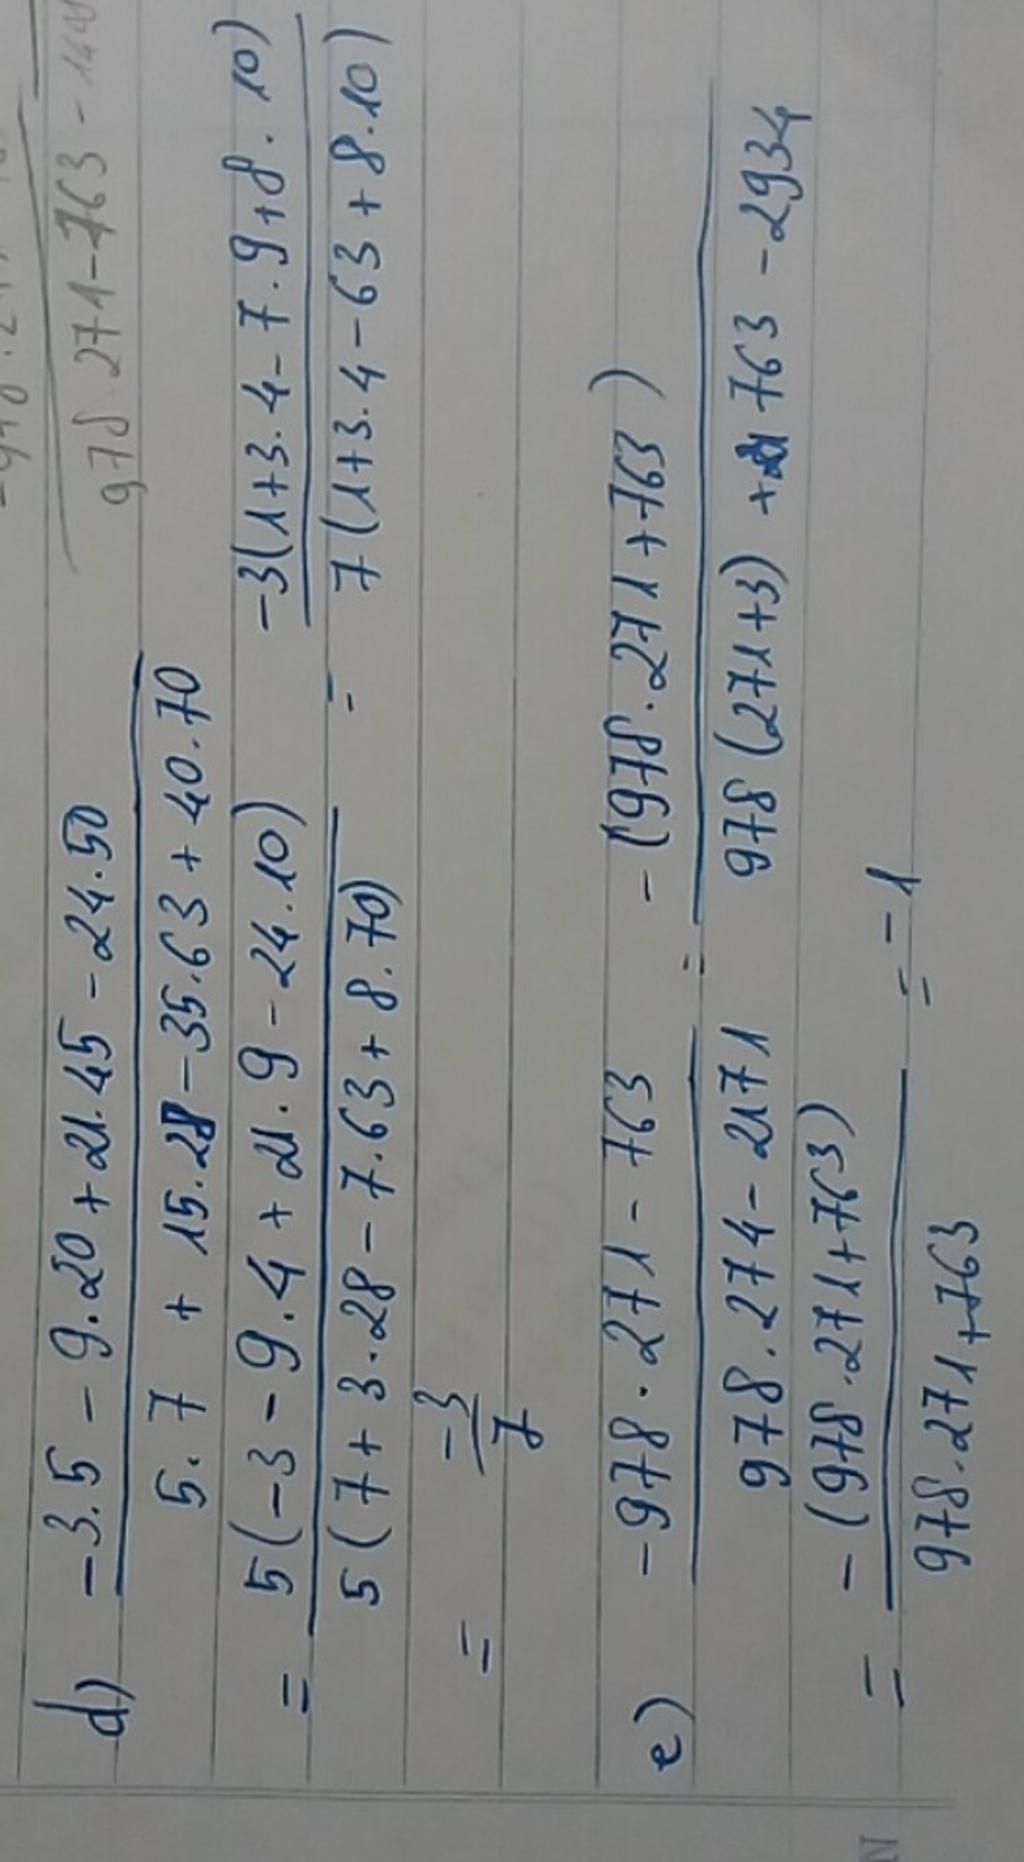 978.271-763-
d) -3.5 - 9.20 + 21.45 - 24.50
5.7 + 15.28 - 35.63 + 40.70
= 5(-3 - 9.4 + 21.9 - 24.10) = -3(1+3.4-7.9+8.10)
5(7 + 3.28 - 7.63 + 8.70) 7(1+3.4-63+8.10)
= -3
7
e) -978.271 - 763 = -(978.271+763)
978.274-2171 978(271+3) + 763 - 2934
= -(978.271+763) = -1
978.271+763